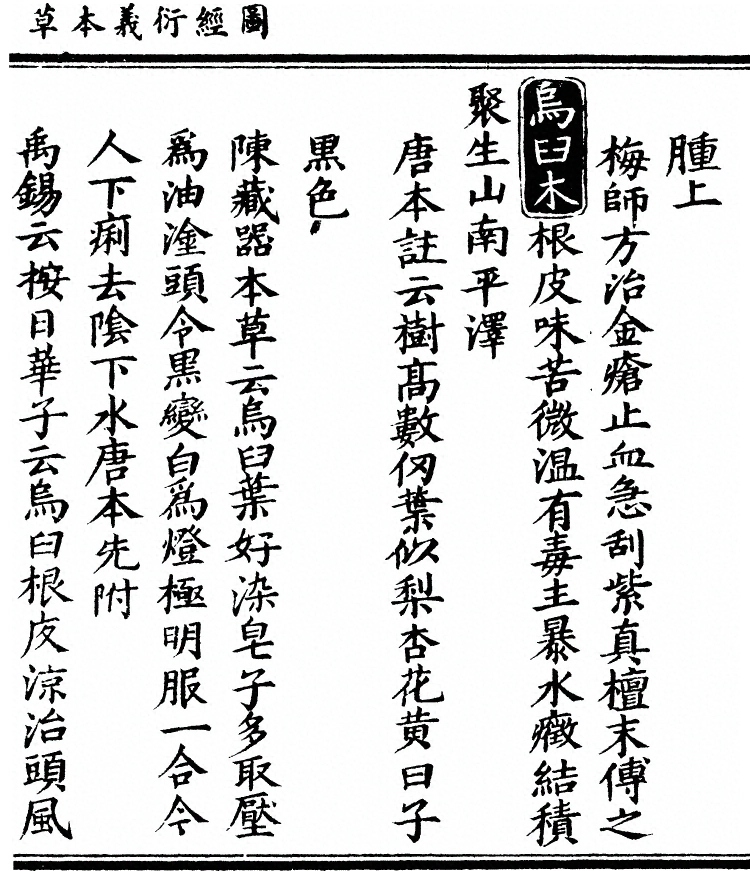 圖經衍義本草
腫上
梅師方治金瘡止血急刮紫真檀末傅之
烏臼木根皮味苦微溫有毒主暴水癥結積
聚生山南平澤
唐本註云樹高數仞葉似梨杏花黃白子
黑色
陳藏器本草云烏臼葉好染皂子多取壓
爲油塗頭令黑變白爲燈極明服一合令
人下痢去陰下水唐本先附
禹錫云按日華子云烏臼根皮涼治頭風